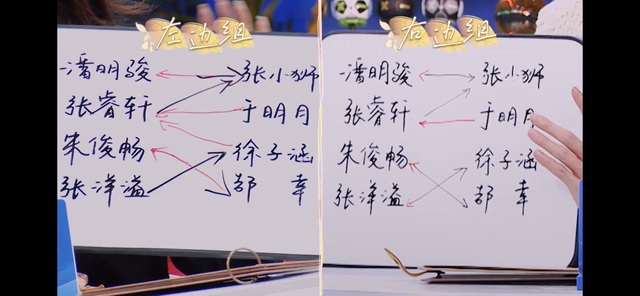 左边组
潘明骏 张小狮
张睿轩 于明月
朱俊畅 徐子涵
张洋溢 郜幸
右边组
潘明骏 张小狮
张睿轩 于明月
朱俊畅 徐子涵
张洋溢 郜幸